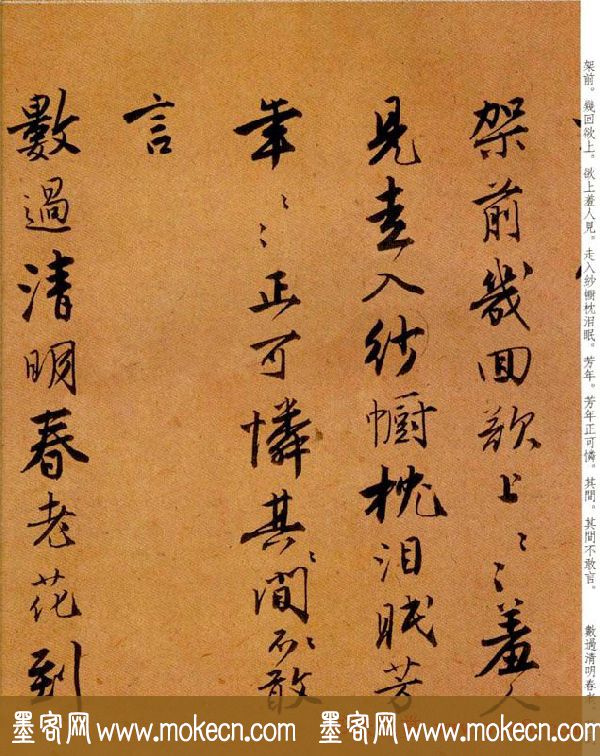 架前。幾回欲上。欲上羞人見。走入紗幮枕泪眠。芳年。芳年正可憐。其間。其間不敢言。
數過清明春老
架前幾回欲上〻〻羞人
見走入紗幮枕泪眠芳
年〻〻正可憐其〻間〻不敢
言
數過清明春老花到
墨客网 www.mokecn.com 墨客网 www.mokecn.com